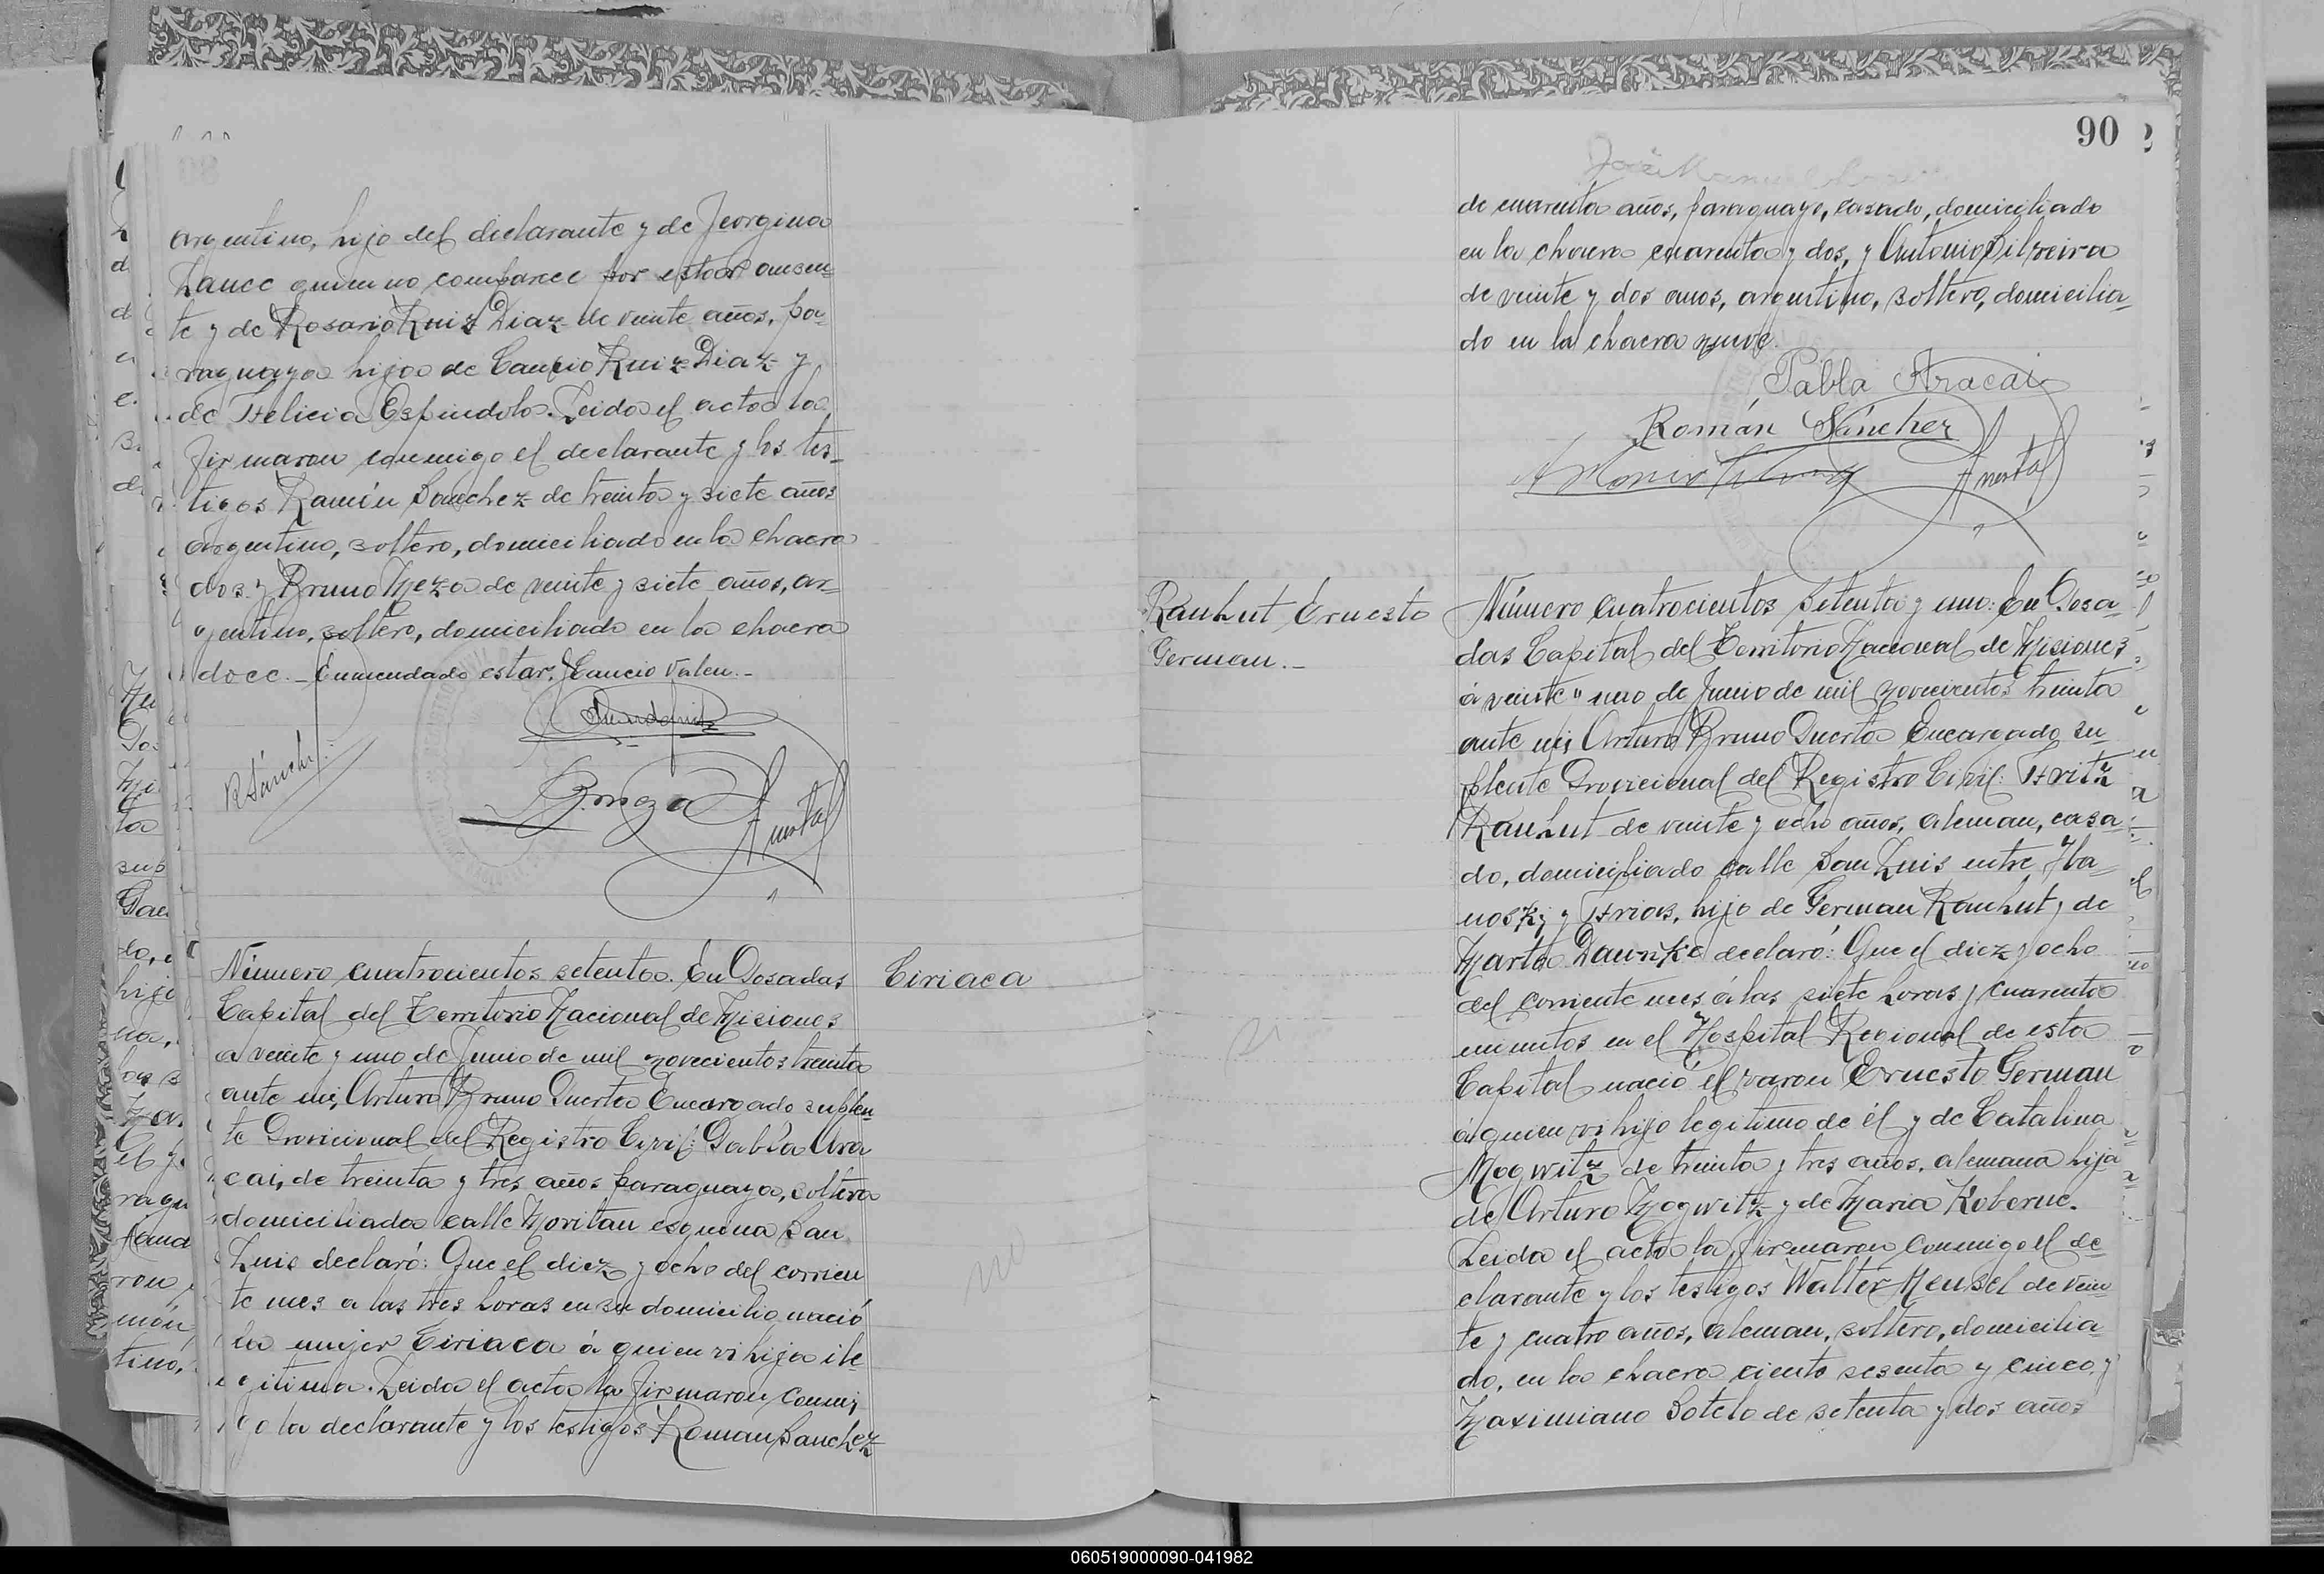 argentino, hijo del declarante y de Jeorgina
Lance quien no comparece por estar ausen=
te y de Rosario Ruiz Diaz de veinte años, pa=
raguaya hija de Cancio Ruiz Diaz y
de Felicia Espindola. Leida el acta la
firmaron conmigo el declarante y los tes=
tigos Ramón Sanchez de treinta y siete años
argentino, soltero, domiciliado en la chacra
dos y Bruno Meza de veinte y siete años, ar=
gentino, soltero, domiciliado en la chacra
doce.- Enmendado estar, Cancio Valen.-
R Sánchez
B. meza
A Huerta
Número cuatrocientos setenta. En Posadas
Capital del Territorio Nacional de Misiones
a veinte y uno de Junio de mil novecientos treinta
ante mi, Arturo Bruno Huerta Encargado suplen=
te Provicional del Registro Civil: Pabla Ara
cai, de treinta y tres años paraguaya, soltera
domiciliada calle Moritan esquina San
Luis declaró: Que el diez y ocho del corrien
te mes a las tres horas en su domicilio nació
la mujer Ciriaca á quien vi hija ile=
gitima. Leida el acta la firmaron conmi,
go la declarante y los testigos Roman Sanchez
Ciriaca
no
90
José Manuel
de cuarenta años, paraguayo, casado, domiciliado
en la chacra cuarenta y dos, y Antonio Silveira
de veinte y dos anos, argentino, soltero, domicilia=
do en la chacra nueve.
Pabla Aracai
Román Sánchez
Antonio Silveira
A Huerta
Rauhut Ernesto
German.-
Número cuatrocientos setenta y uno: En Posa=
das Capital del Territorio Nacional de Misiones
á veinte y uno de Junio de mil novecientos treinta
ante mi, Arturo Bruno Huerta Encargado su=
plente Provicional del Registro Civil: Fritz
Rauhut de veinte y ocho años, aleman, casa=
do, domiciliado calle San Luis entre Iba=
nosky y Frias, hijo de German Rauhut y de
Marta Dawnke declaró: Que el diez y ocho
del corriente mes á las siete horas y cuarenta
minutos en el Hospital Regional de esta
Capital nació el varon Ernesto German
á quien vi hijo legitimo de él y de Catalina
Mogwitz de treinta y tres años, alemana hija
de Arturo Mogwitz y de Maria Koberne.
Leida el acta la firmaron conmigo el de=
clarante y los testigos Walter Hensel de vein=
te y cuatro años, aleman, soltero, domicilia=
do, en la chacra ciento sesenta y cinco, y
Maximiano Sotelo de setenta y dos años
si
060519000090-041982